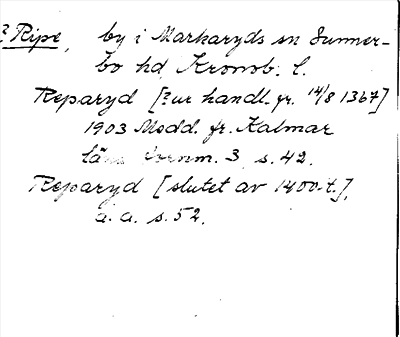 ? Ripe, by i Markaryds sn Sunner-
bo hd, Kronob. l.
Reparyd [?ur handl. fr. 14/8 1367]
1903 Medd. fr. Kalmar
läns fornm. 3, s. 42.
Reparyd [slutet av 1400-t.],
a. a. s. 52.